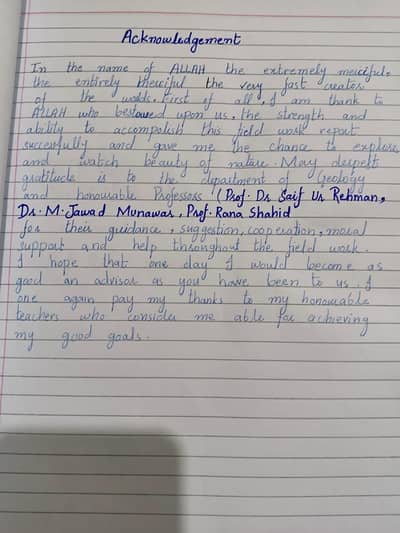 Acknowledgement
In the name of ALLAH the extremely merciful,
the entirely merciful the very fast creater
of the worlds. First of all, I am thank to
ALLAH who bestowed upon us, the strength and
ability to accompolish this field work report
successfully and gave me the chance to explore
and watch beauty of nature. May deepest
gratitude is to the department of Geology
and honourable Professors (Prof. Dr. Saif Ur Rehman,
Dr. M. Jawad Munawar, Prof. Rana Shahid
for their guidance, suggestion, cooperation, moral
support and help throughout the field work.
I hope that one day I would become as
good an advisor as you have been to us. I
one again pay my thanks to my honourable
teachers who consider me able for achieving
my good goals.